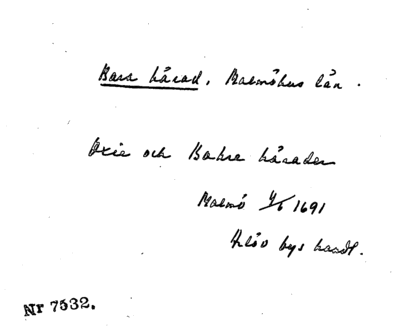 Bara härad, Malmöhus län.
Oxie och Bahra härader
Malmö 4/6 1691
Klöv bys handl.
Nr 7532.